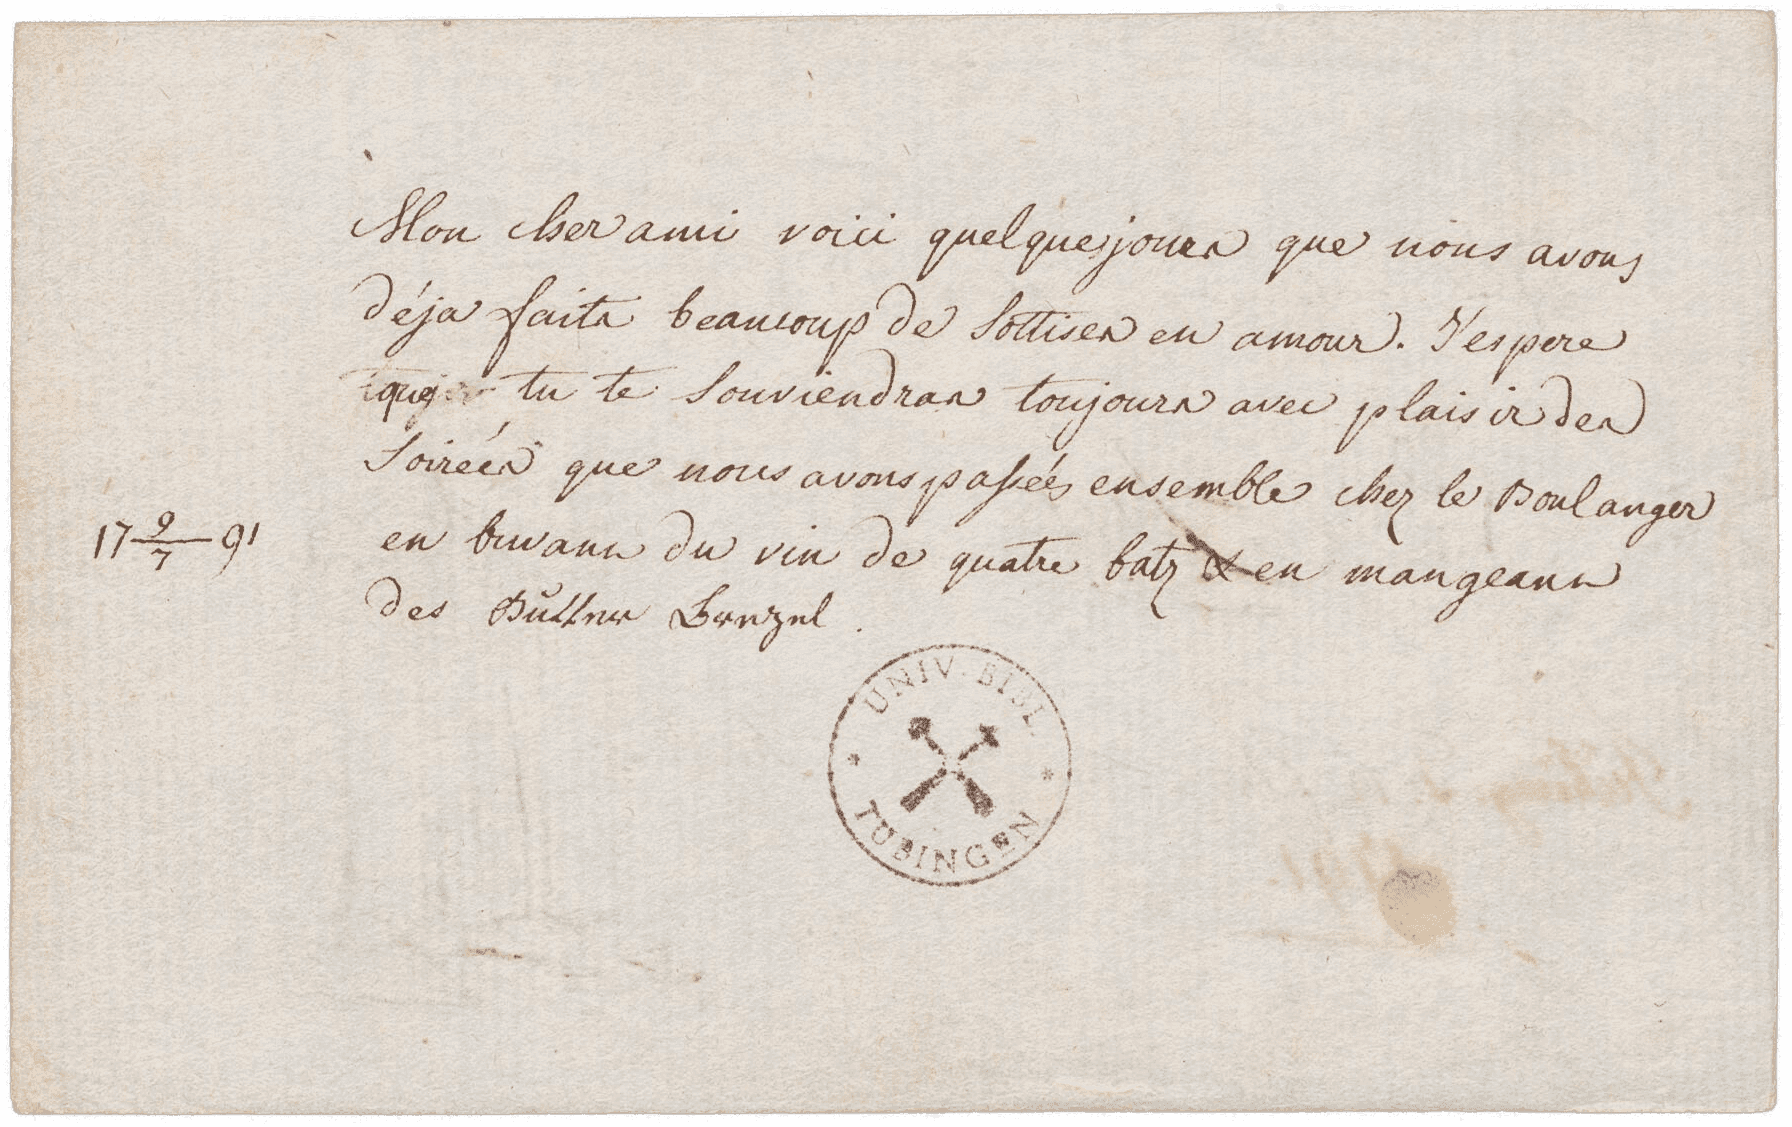 Mon cher ami voici quelques jours que nous avons
déja faits beaucoup de sottises en amour. J'espere
que tu te souviendras toujours avec plaisir des
soirées que nous avons passées ensemble chez le Boulanger
17 9/7 91
en buvant du vin de quatre batz & en mangeant
des Butter Brezel.
UNIV. BIBL.
* *
TUBINGEN
1791.